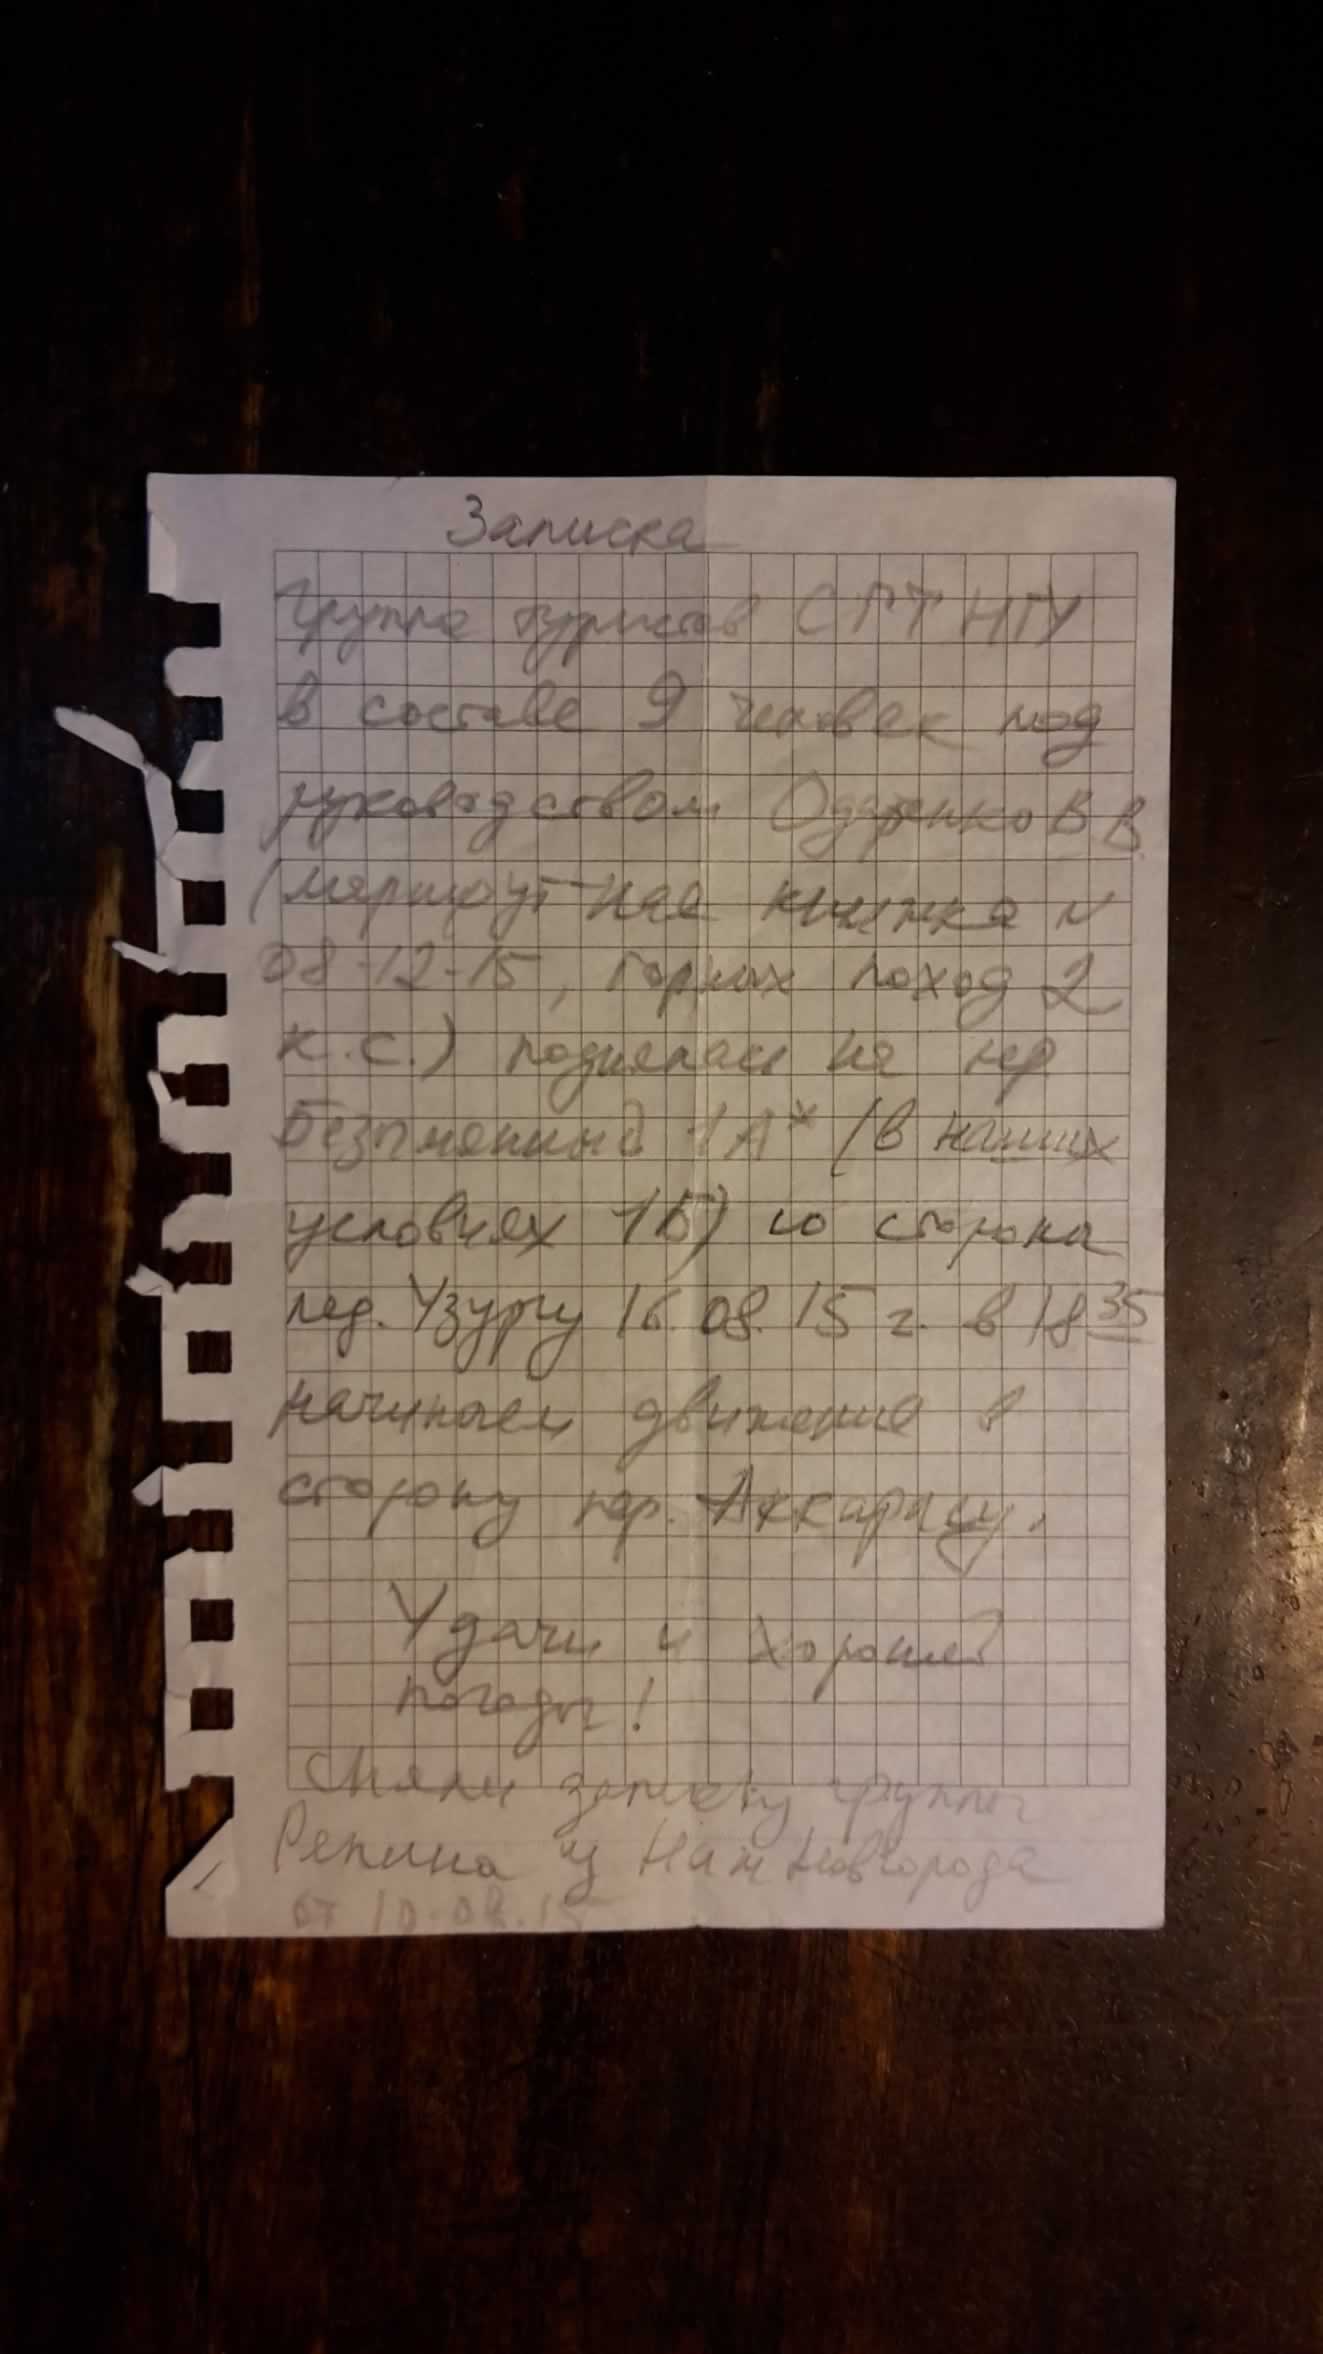 Записка
Группа туристов СГТ НГУ
в составе 9 человек под
руководством Одаренко В В
(маршрутная книжка N
08-12-15, горных поход 2
к.с.) поднялась на пер
Безымянный 1А* (в наших
условиях 1Б) со стороны
лед. Узургу 16.08.15 г. в 18 35
начинаем движение в
сторону пер. Аккарасу.
Удачи и хорошей
погоды!
Сняли записку группы
Репина из Ниж Новгорода
от 10.08.15